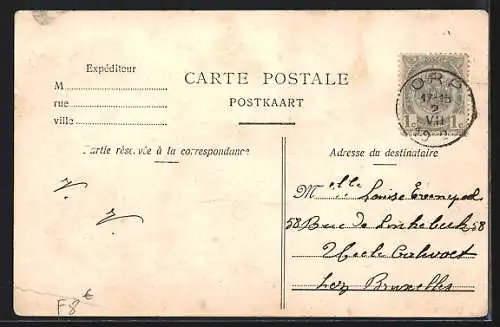 Expéditeur
M
rue
ville
CARTE POSTALE
POSTKAART
ORP
17-18
2
VII
1c 1c
Partie réservée à la correspondance
Adresse du destinataire
Melle Louise
58 Rue de Linkebeek 58
Uccle Calevoet
Lez Bruxelles
F 8 €